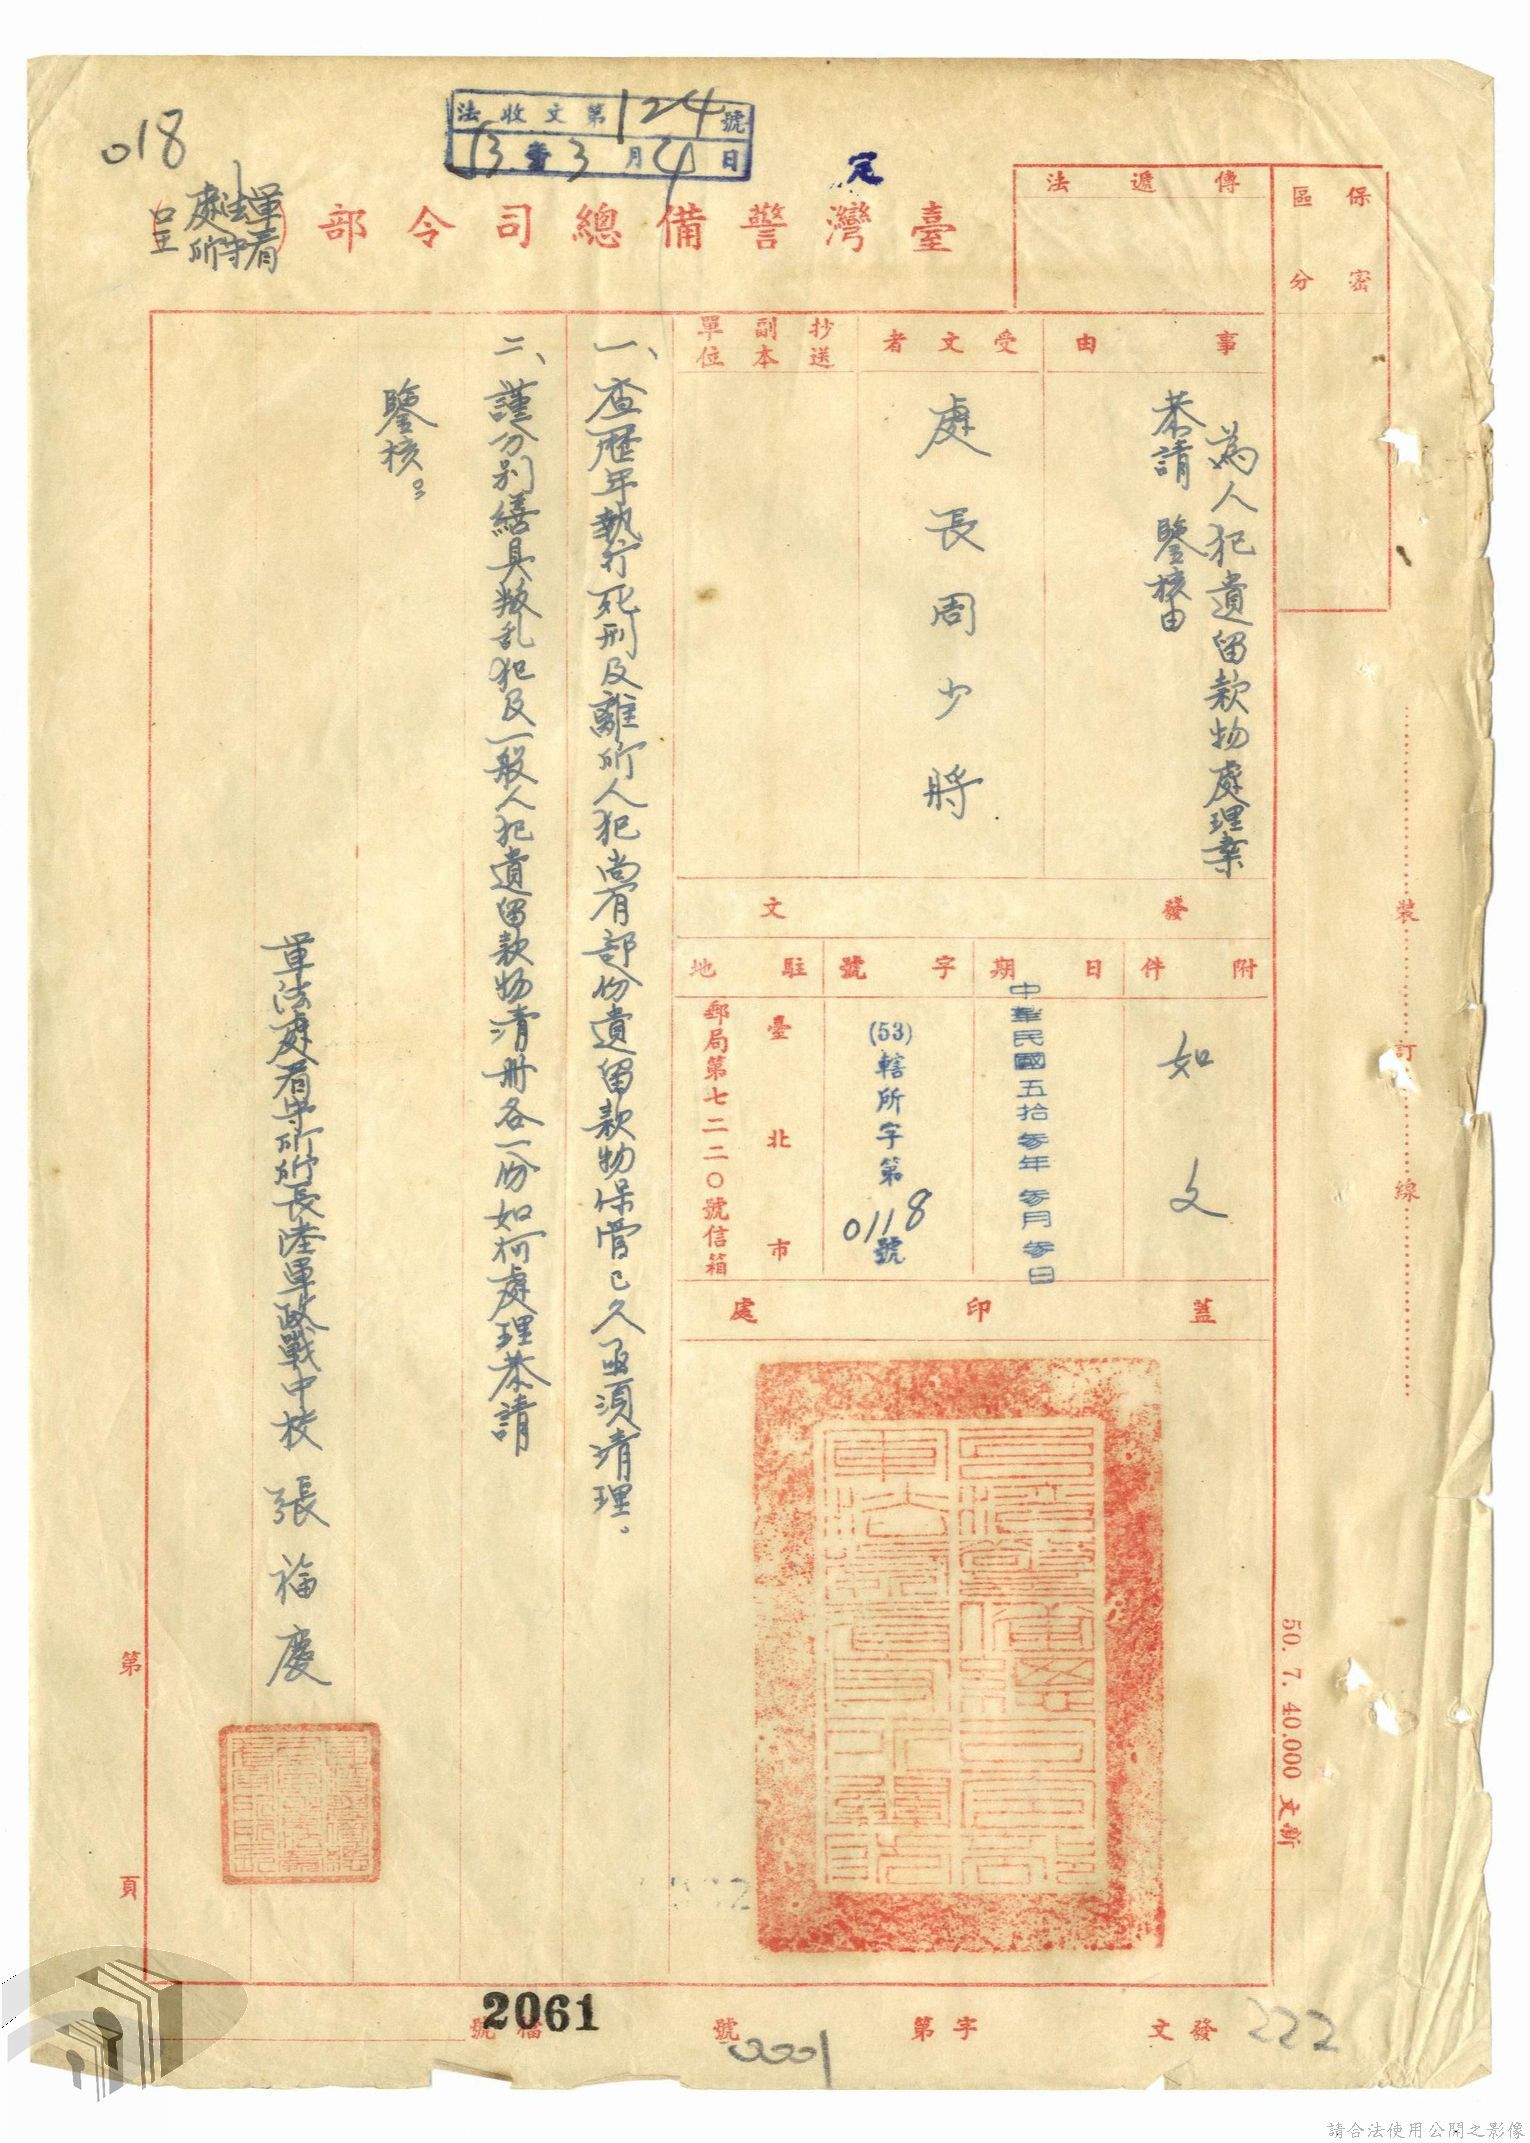 018
法收文第124號
53年3月4日
臺灣警備總司令部
軍法處
看守所
呈
保密
區分
傳遞法
事由
為人犯遺留款物處理案
恭請 鑒核由
受文者
處長周少將
抄送
副本
單位
發文
附件
如文
日期
中華民國五拾叁年叁月叁日
字號
(53)轄所字第0118號
駐地
臺北市
郵局第七二二〇號信箱
蓋印處
一、查歷年執行死刑及離所人犯尚有部份遺留款物保管已久亟須清理。
二、謹分別繕具叛乱犯及一般人犯遺留款物清册各一份如何處理恭請
鑒核。
軍法處看守所所長陸軍政戰中校 張福慶
裝訂線
50. 7. 40.000 文新
第 頁
發文 字第 號
檔號
2061
0001
222
請合法使用公開之影像